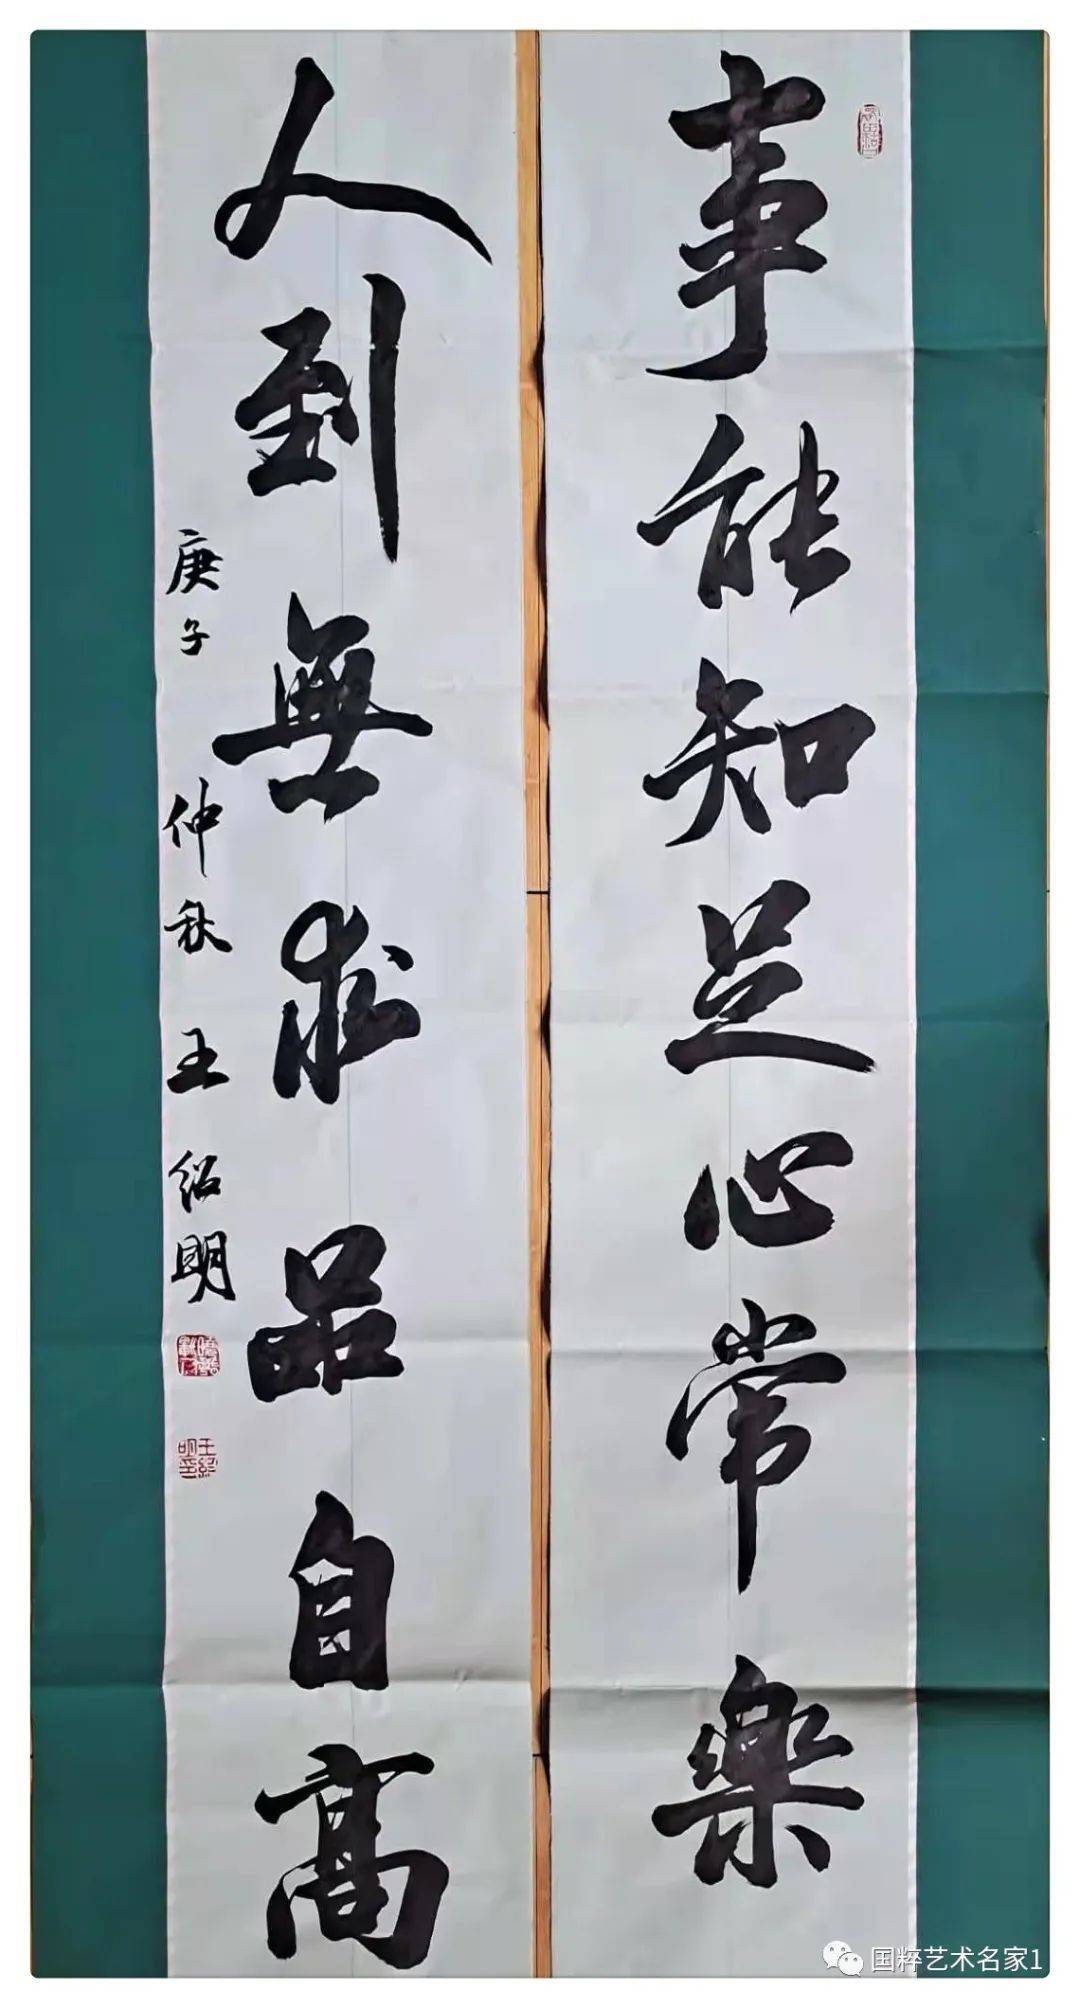 事能知足心常樂
人到無求品自高
庚子 仲秋 王紹明
国粹艺术名家1